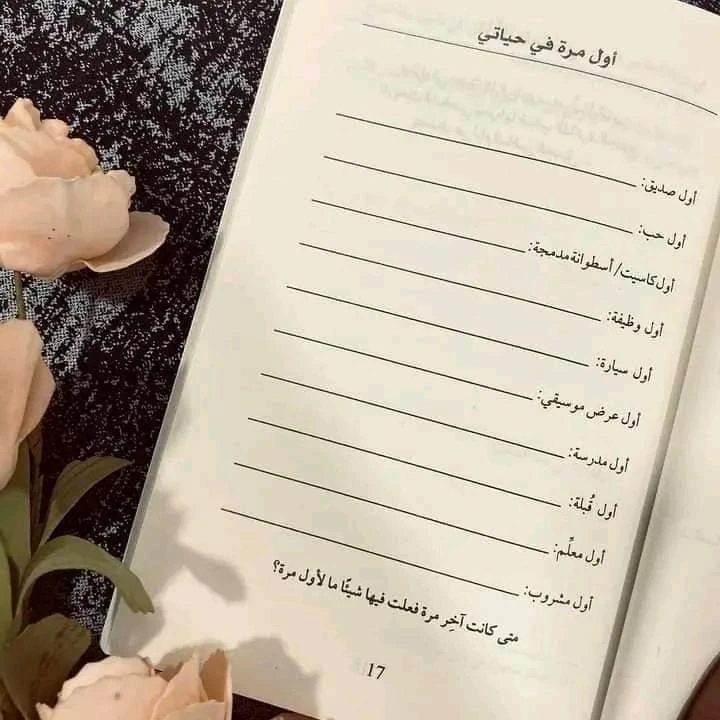 أول مرة في حياتي
أول صديق:
أول حب:
أول كاسيت/ أسطوانة مدمجة:
أول وظيفة:
أول سيارة:
أول عرض موسيقي:
أول مدرسة:
أول قُبلة:
أول معلِّم:
أول مشروب:
متى كانت آخِر مرة فعلت فيها شيئًا ما لأول مرة؟
17